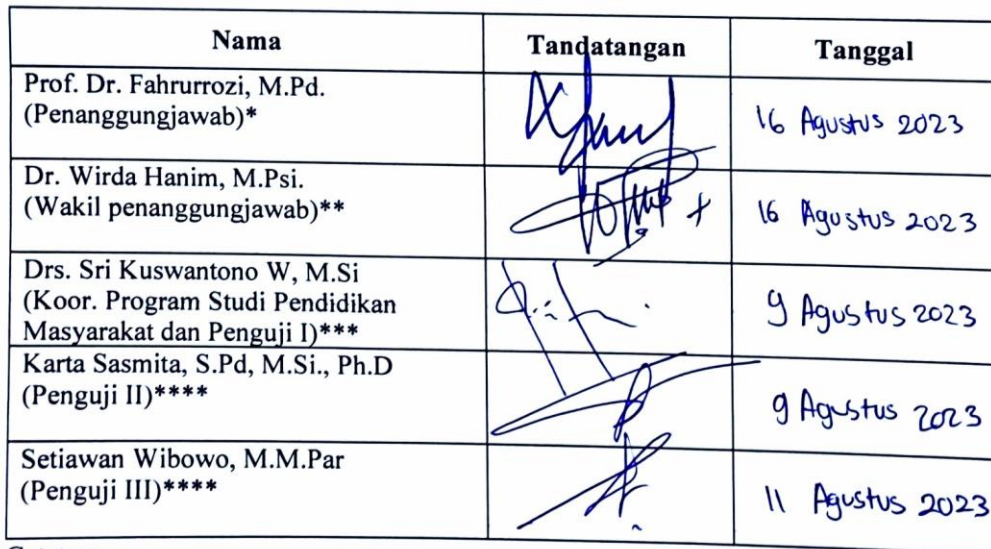 Nama Tandatangan Tanggal
Prof. Dr. Fahrurrozi, M.Pd.
(Penanggungjawab)* 16 Agustus 2023
Dr. Wirda Hanim, M.Psi.
(Wakil penanggungjawab)** 16 Agustus 2023
Drs. Sri Kuswantono W, M.Si
(Koor. Program Studi Pendidikan 9 Agustus 2023
Masyarakat dan Penguji I)***
Karta Sasmita, S.Pd, M.Si., Ph.D
(Penguji II)**** 9 Agustus 2023
Setiawan Wibowo, M.M.Par
(Penguji III)**** 11 Agustus 2023